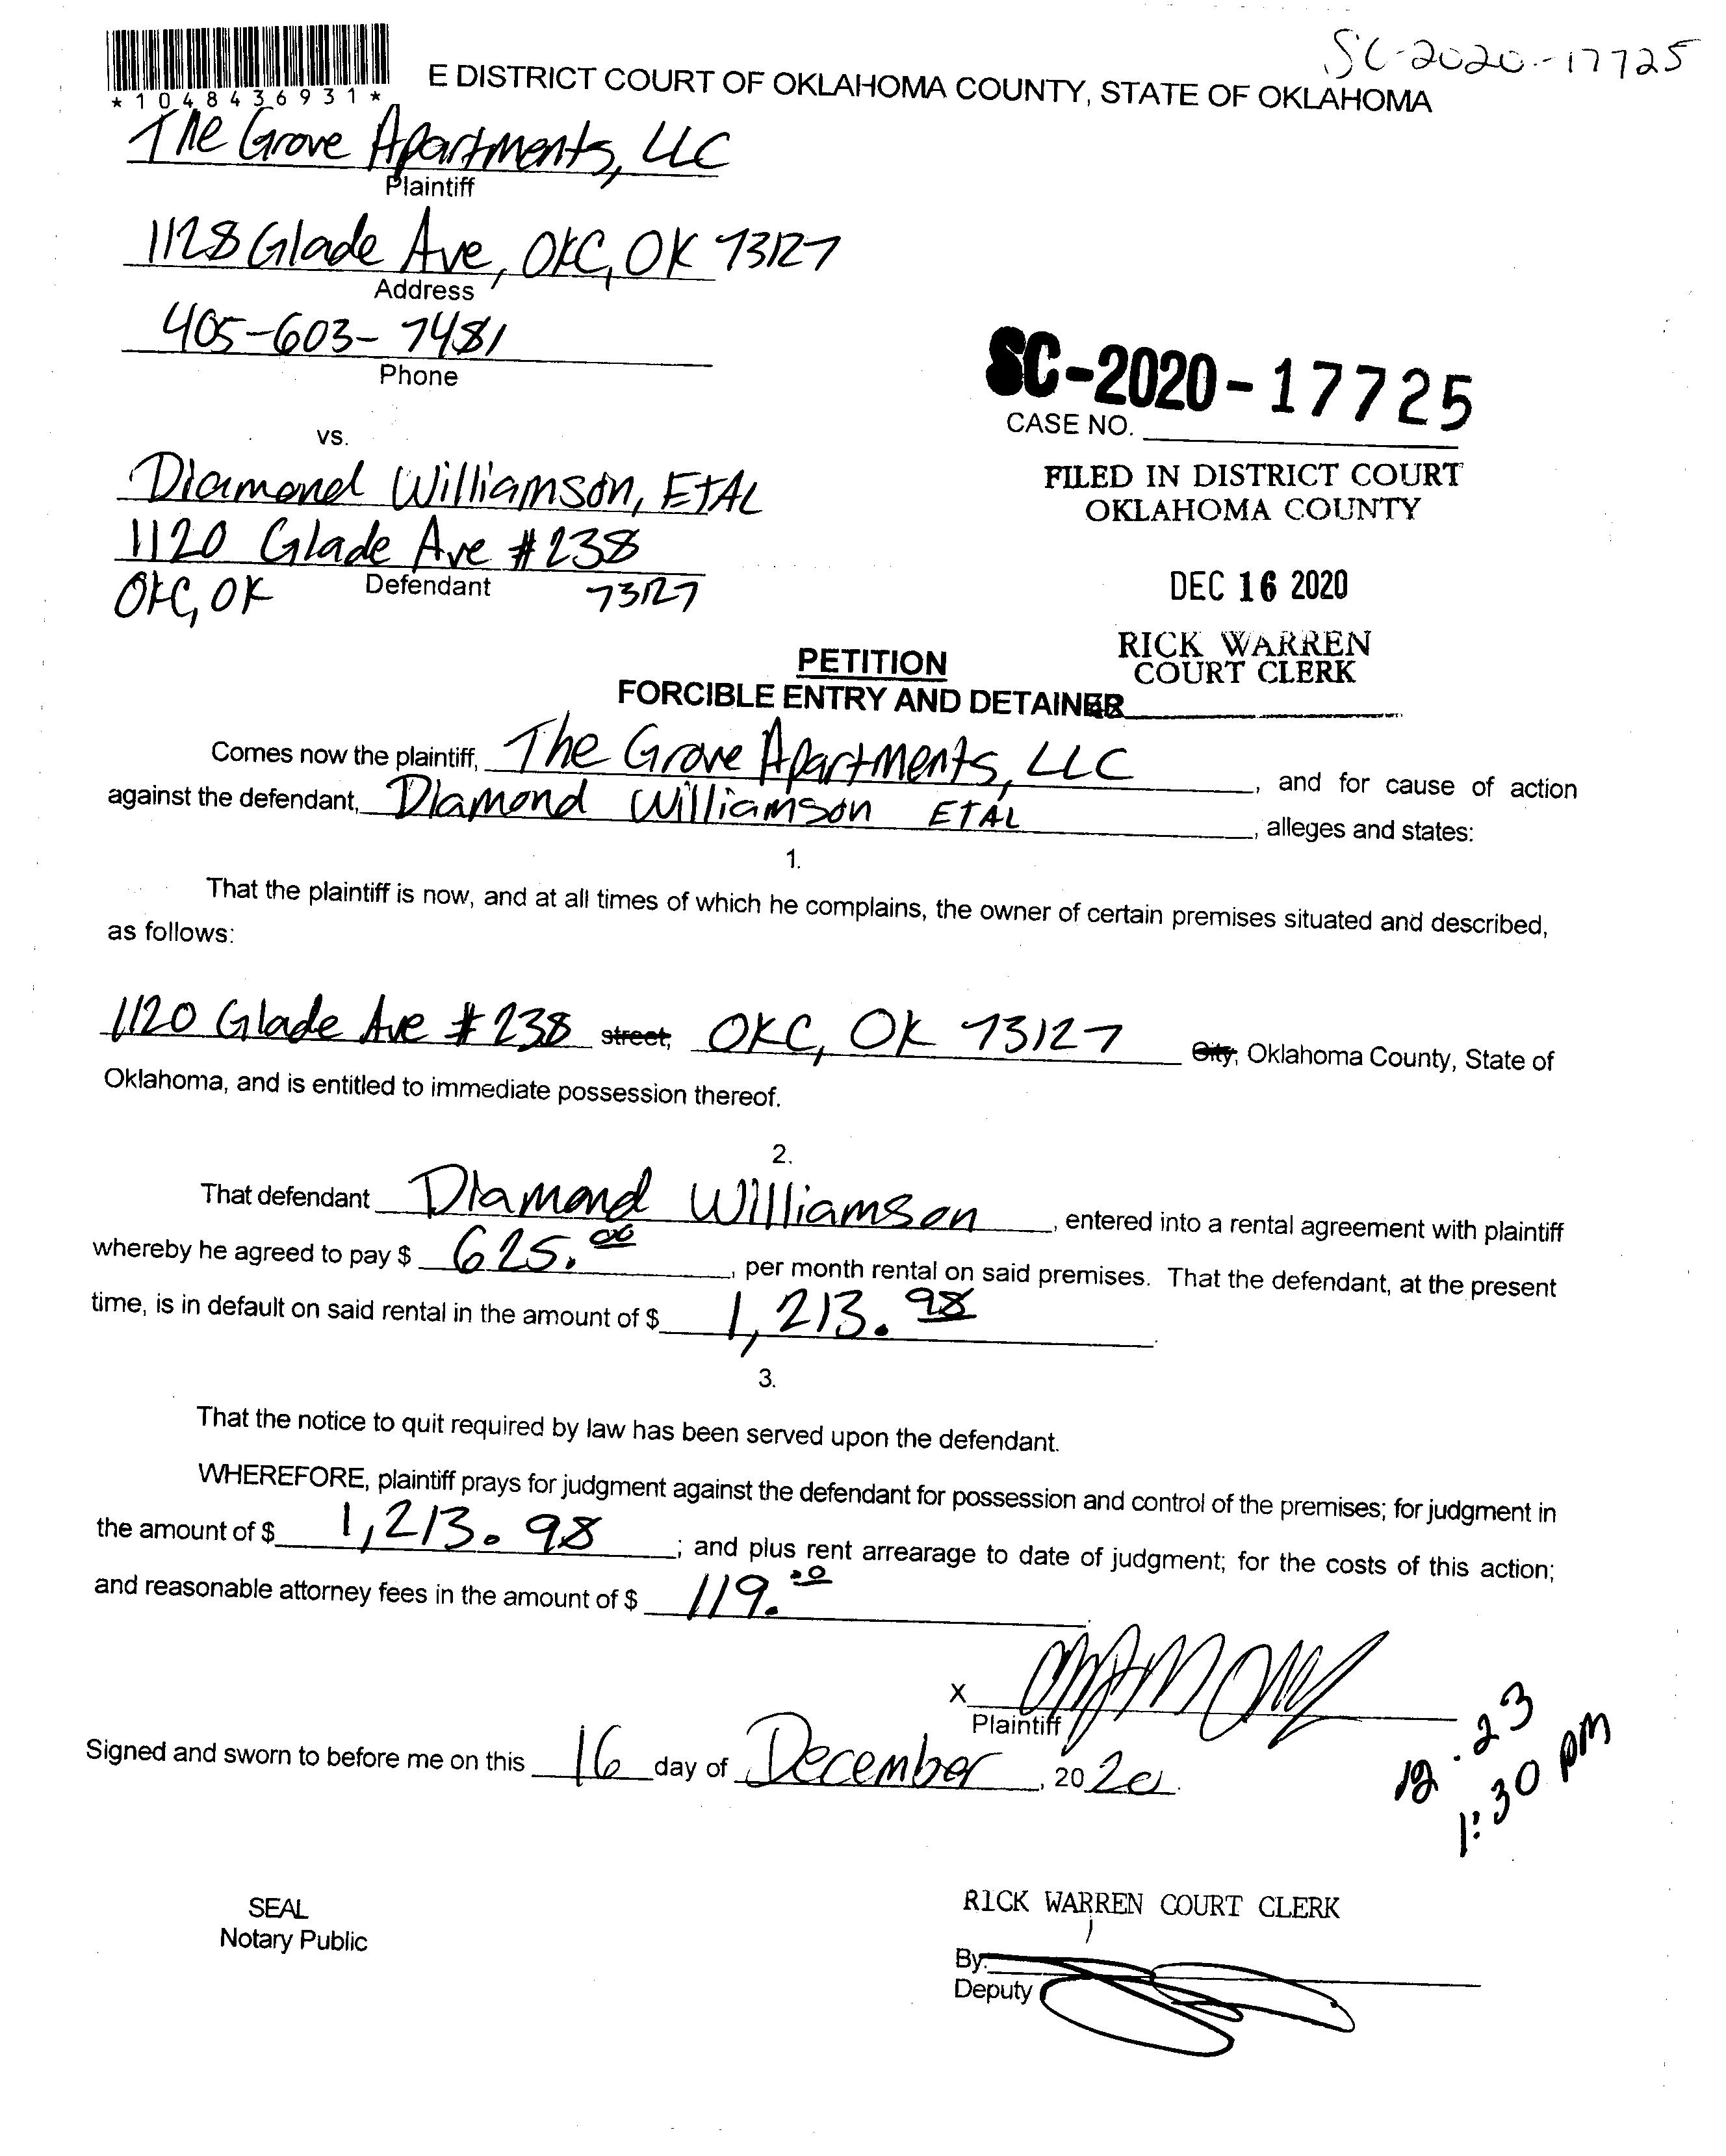 SC-2020-17725
*1048436931*
E DISTRICT COURT OF OKLAHOMA COUNTY, STATE OF OKLAHOMA
The Grove Apartments, LLC
Plaintiff
1128 Glade Ave, OKC, OK 73127
Address
405-603-7481
Phone
SC-2020-17725
CASE NO.
vs.
Diamond Williamson, ETAL
1120 Glade Ave #238
Defendant
OKC, OK 73127
FILED IN DISTRICT COURT
OKLAHOMA COUNTY
DEC 16 2020
RICK WARREN
COURT CLERK
PETITION
FORCIBLE ENTRY AND DETAINER
Comes now the plaintiff, The Grove Apartments, LLC, and for cause of action
against the defendant, Diamond Williamson ETAL, alleges and states:
1.
That the plaintiff is now, and at all times of which he complains, the owner of certain premises situated and described,
as follows:
1120 Glade Ave #238 street, OKC, OK 73127 City, Oklahoma County, State of
Oklahoma, and is entitled to immediate possession thereof.
2.
That defendant Diamond Williamson, entered into a rental agreement with plaintiff
whereby he agreed to pay $ 625.00, per month rental on said premises. That the defendant, at the present
time, is in default on said rental in the amount of $ 1,213.98.
3.
That the notice to quit required by law has been served upon the defendant.
WHEREFORE, plaintiff prays for judgment against the defendant for possession and control of the premises; for judgment in
the amount of $ 1,213.98; and plus rent arrearage to date of judgment; for the costs of this action;
and reasonable attorney fees in the amount of $ 119.00.
X
Plaintiff
Signed and sworn to before me on this 16 day of December, 2020.
12.23
1:30 PM
SEAL
Notary Public
RICK WARREN COURT CLERK
By:
Deputy